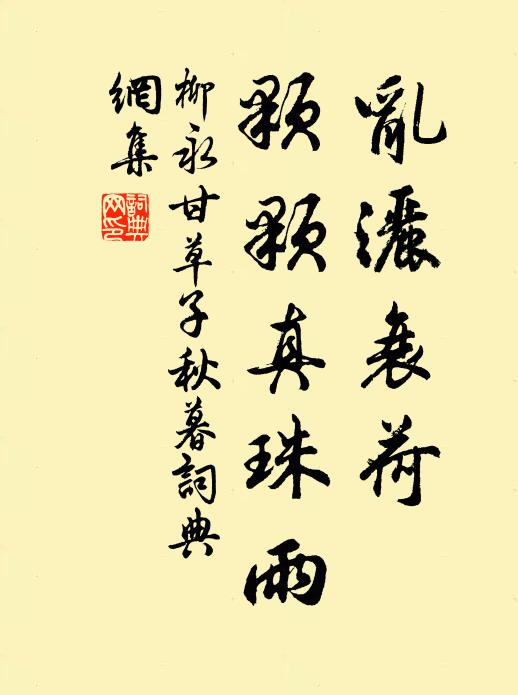 亂灑衰荷
顆顆真珠雨
柳永甘草子秋暮詞典
網集
詞典
网印